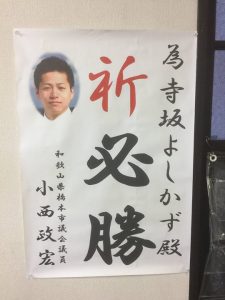 為寺坂よしかず殿
祈必勝
和歌山県橋本市議会議員
小西政宏